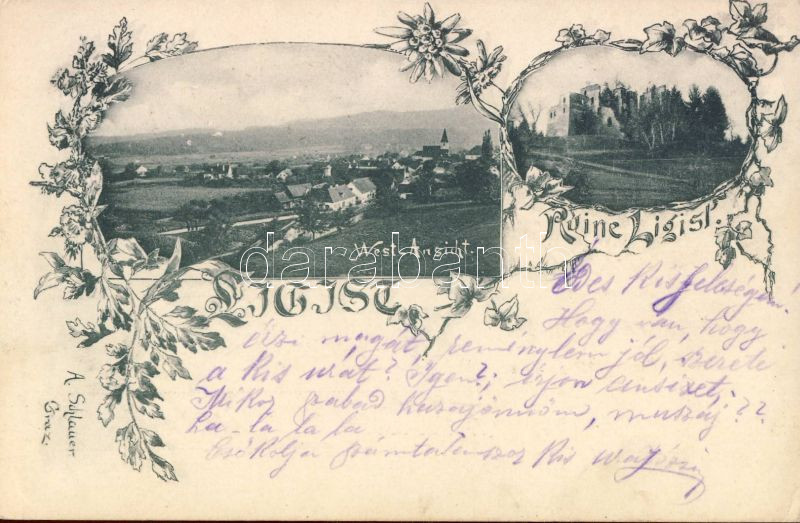 West-Ansicht.
Ruine Ligist.
LIGIST
A. Schlauer
Graz.
darabanth
Édes Kisfelségem!
Hogy van, hogy
érzi magát, reménylem jól, szereti
a kis urát? Igen?; írjon
Mikor szabad hazajönnöm, muszáj??
La-la la la
Csókolja számtalanszor kis ura